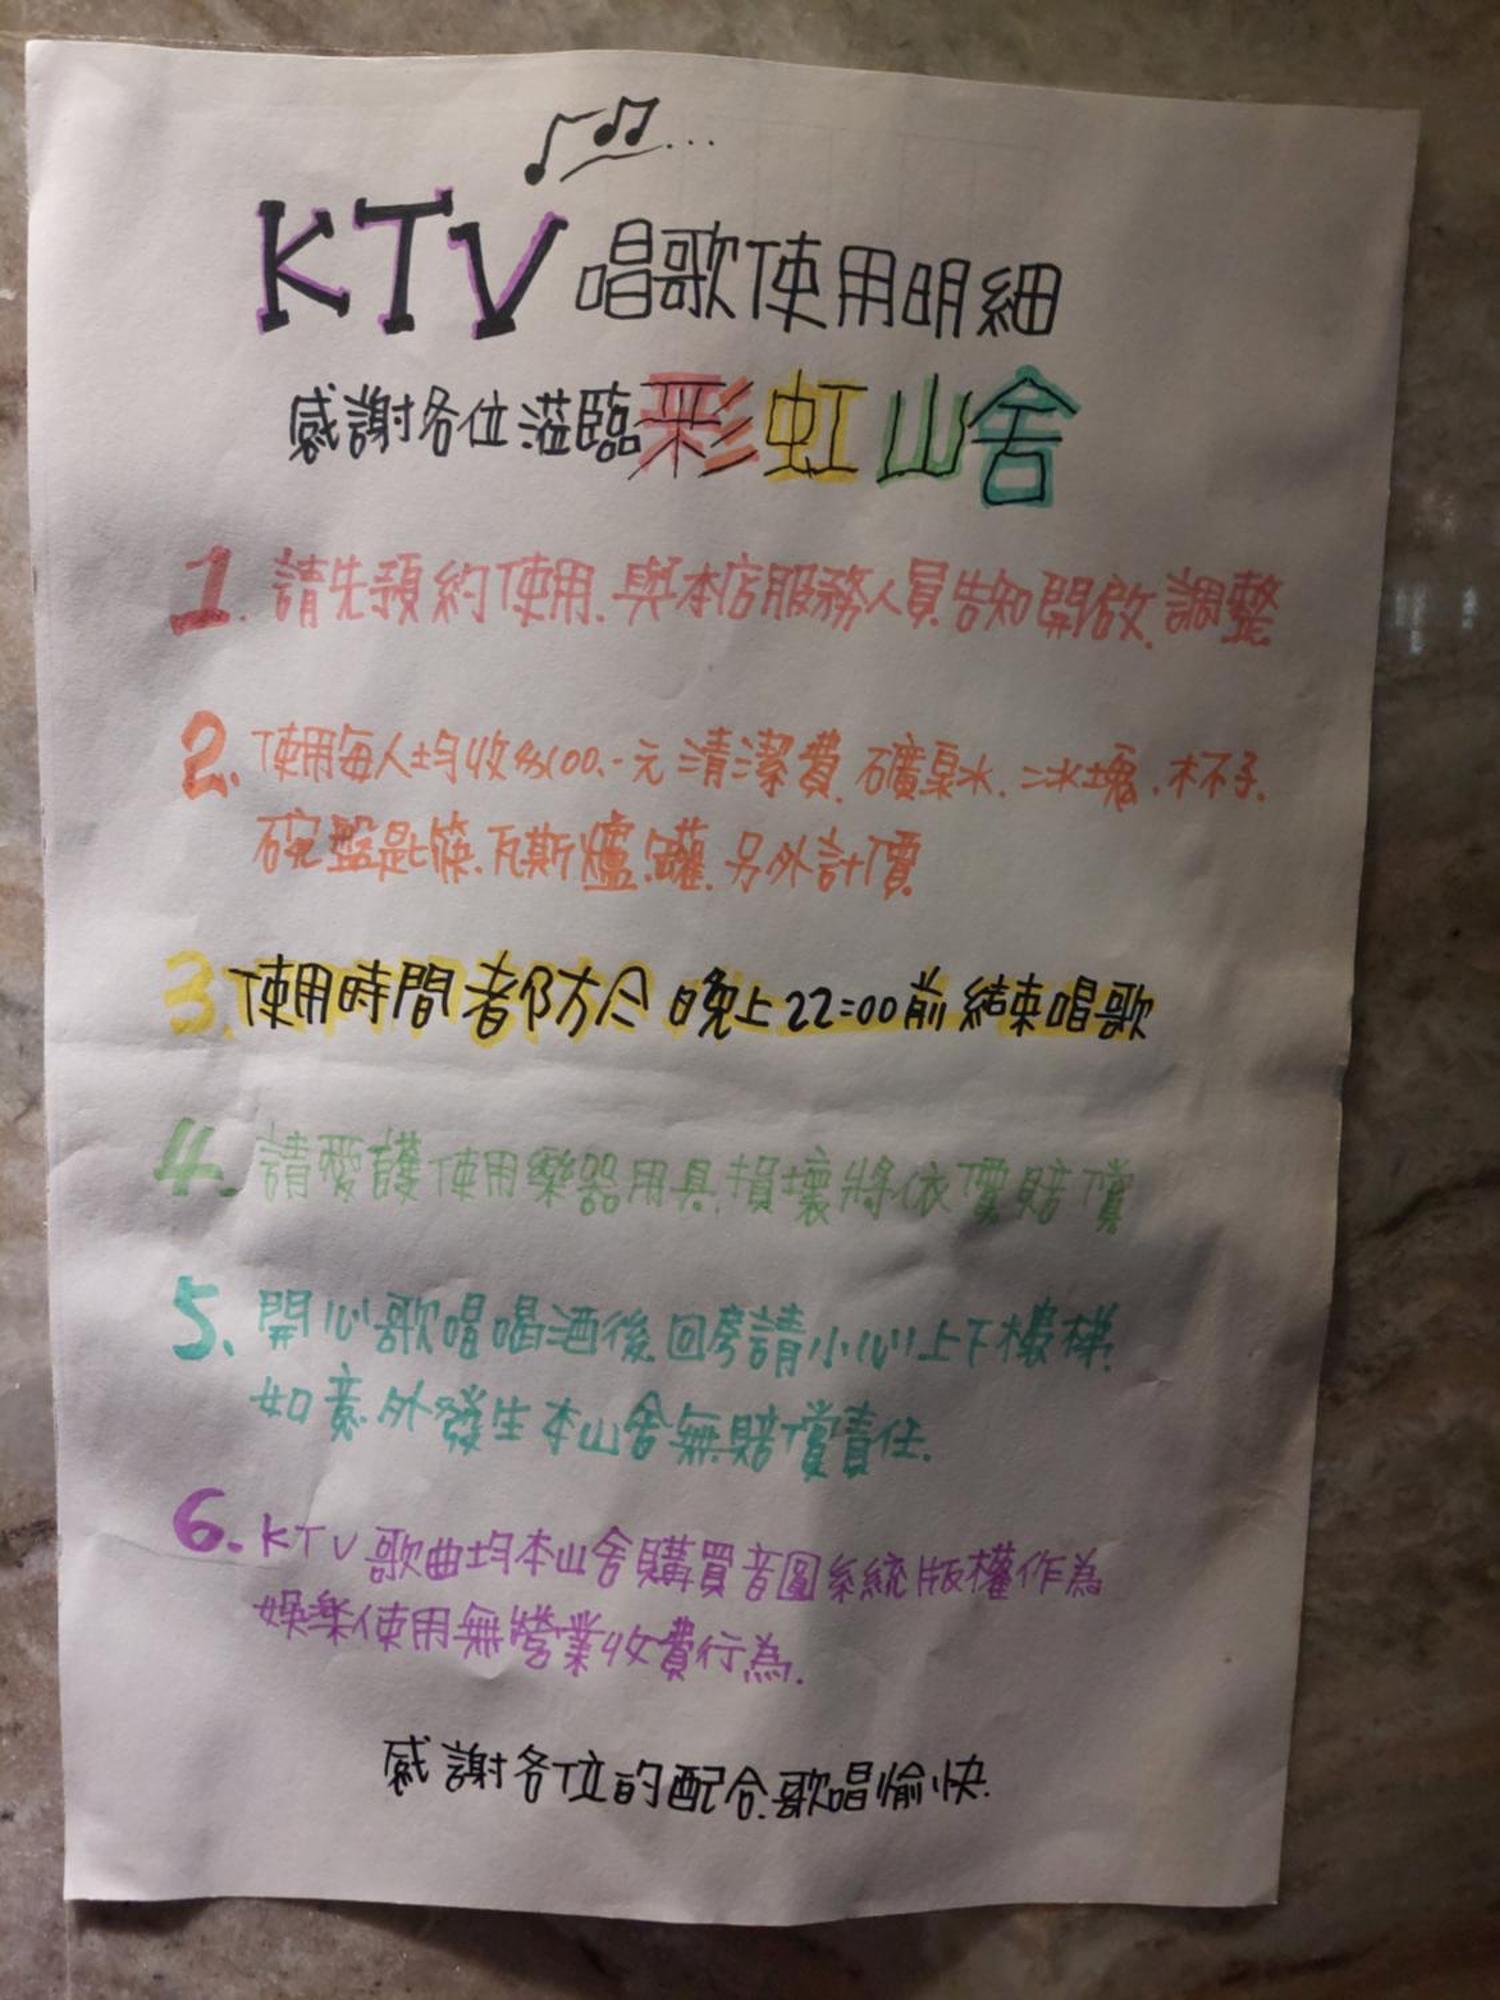 KTV 唱歌使用明細
感謝各位蒞臨彩虹山舍
1. 請先預約使用.與本店服務人員告知開啟.調整
2. 使用每人均收$100.-元清潔費.礦泉水.冰塊.杯子.
碗盤匙筷.瓦斯爐.罐.另外計價
3. 使用時間都於 晚上22:00前結束唱歌
4. 請愛護使用樂器用具.損壞將依價賠償
5. 開心歌唱喝酒後.回房請小心上下樓梯.
如意外發生本山舍無賠償責任.
6. KTV 歌曲均本山舍購買音圓系統版權作為
娛樂使用無營業收費行為.
感謝各位的配合.歌唱愉快.